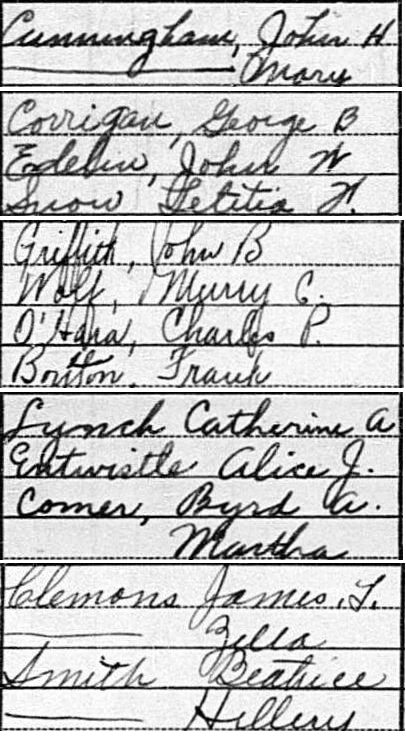 Cunningham, John H
Mary
Corrigan, George B
Edelin, John W
Snow Letitia H.
Griffith, John B
Wolf, Murry C.
O'Hara, Charles P.
Boutton, Frank
Lynch Catherine A
Entwistle Alice J.
Comer, Byrd A.
Martha
Clemons James. T.
Zella
Smith Beatrice
Hillery